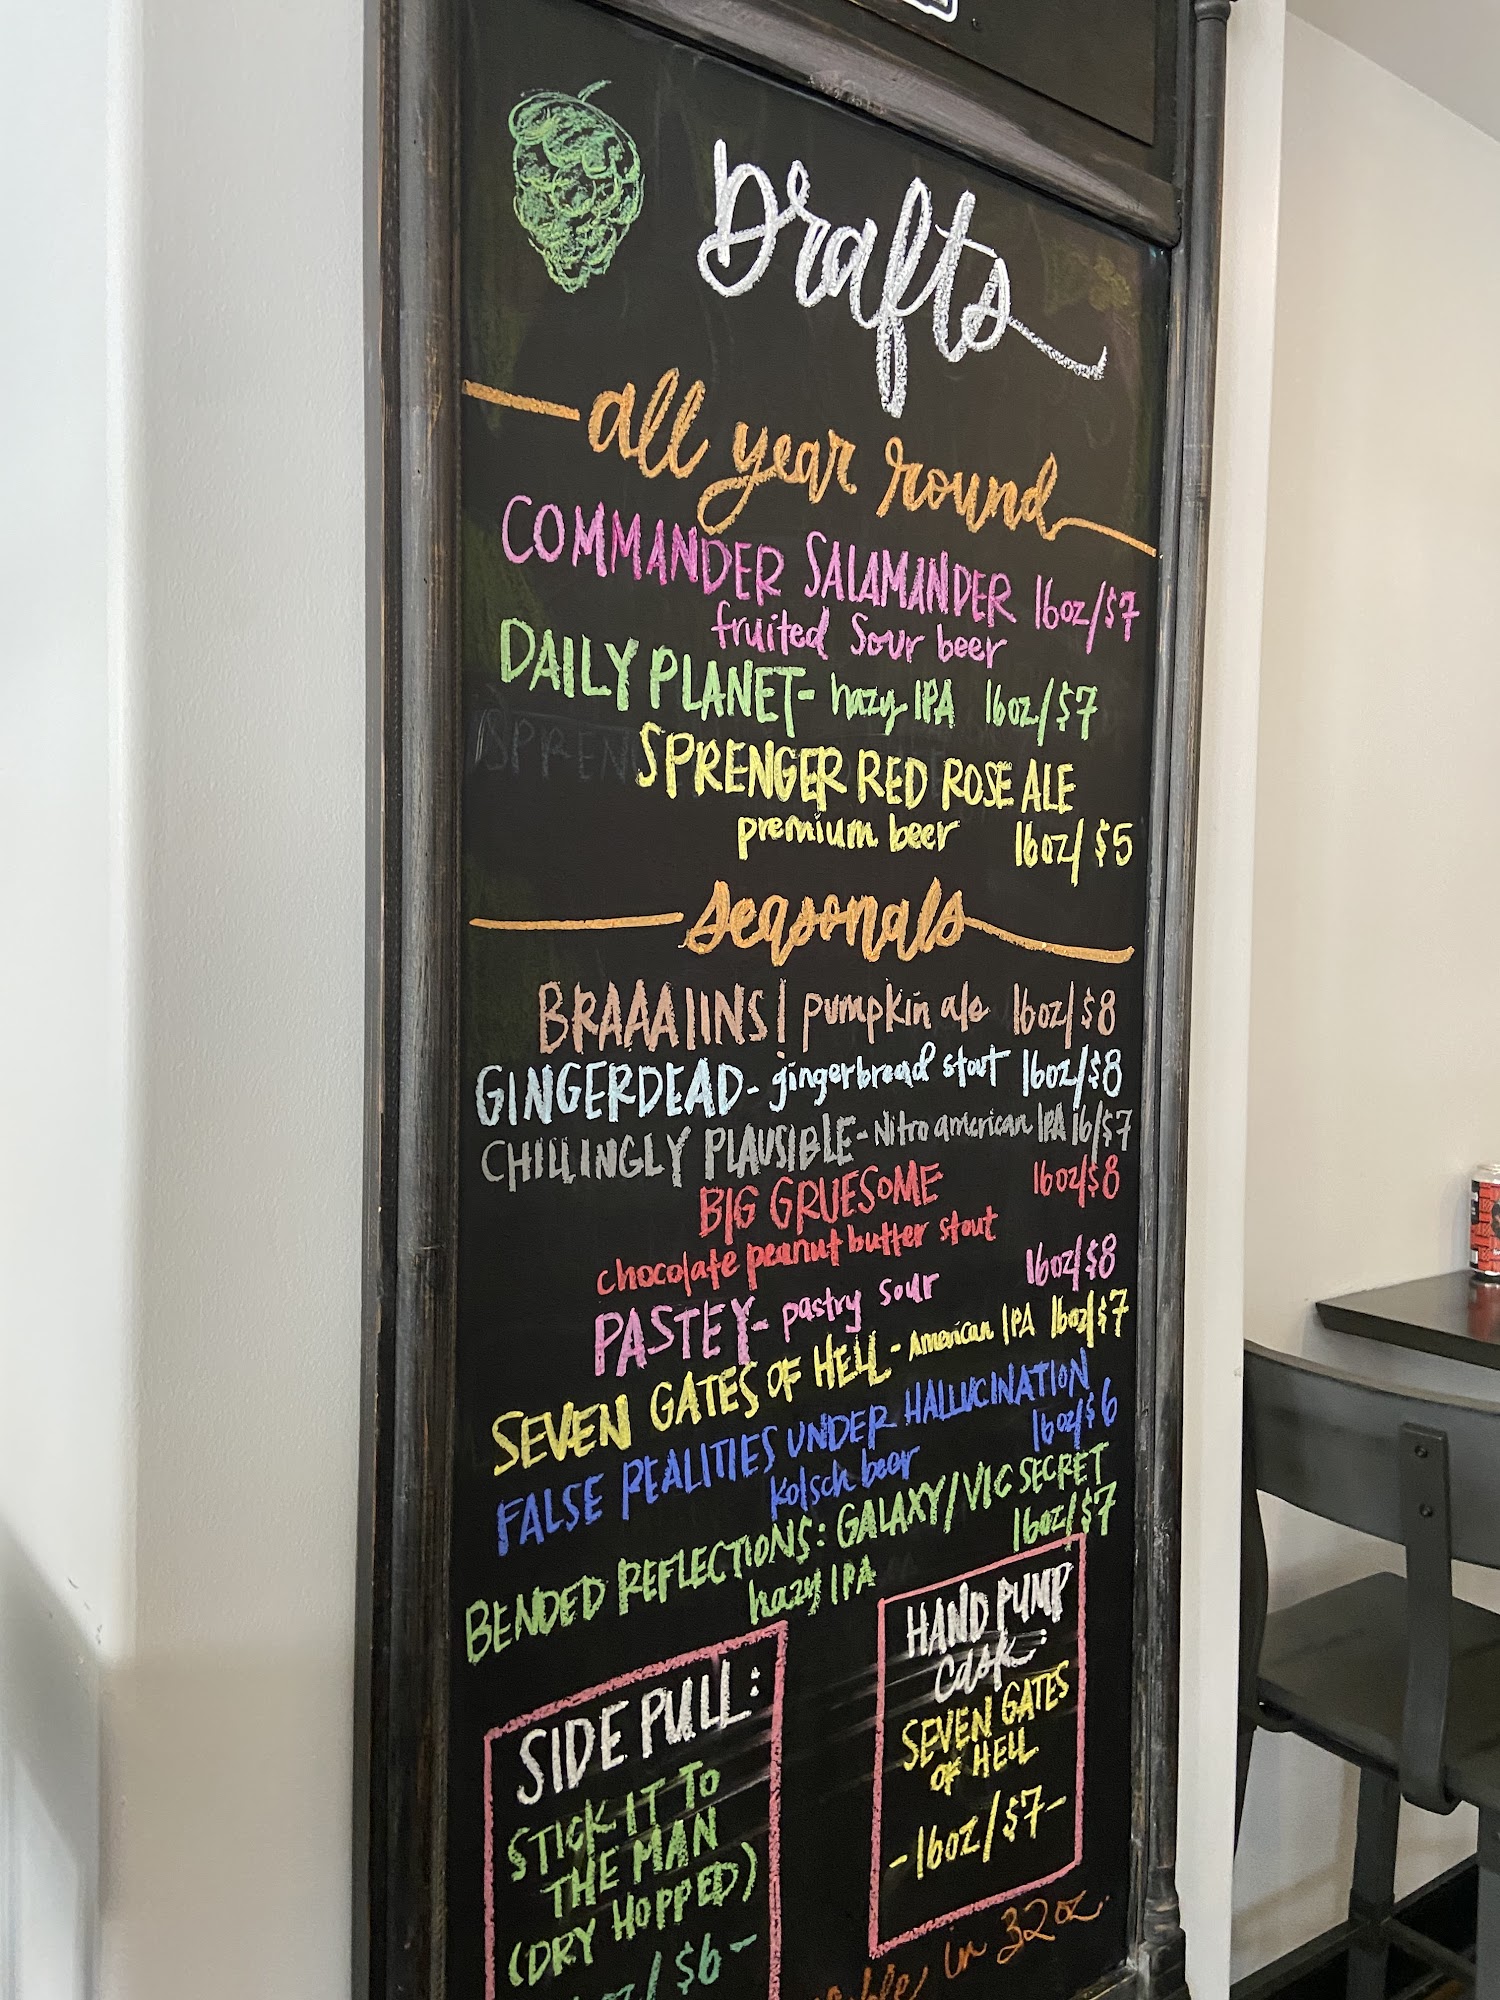 Drafts
all year round
COMMANDER SALAMANDER 16oz/$7
fruited sour beer
DAILY PLANET- hazy IPA 16oz/$7
SPRENGER RED ROSE ALE
premium beer 16oz/$5
seasonals
BRAAAIINS! pumpkin ale 16oz/$8
GINGERDEAD- gingerbread stout 16oz/$8
CHILLINGLY PLAUSIBLE- Nitro american IPA 16/$7
BIG GRUESOME 16oz/$8
chocolate peanut butter stout
PASTEY- pastry sour 16oz/$8
SEVEN GATES OF HELL- American IPA 16oz/$7
FALSE REALITIES UNDER HALLUCINATION
kolsch beer 16oz/$6
BENDED REFLECTIONS: GALAXY/VIC SECRET
hazy IPA 16oz/$7
SIDE PULL:
STICK IT TO
THE MAN
(DRY HOPPED)
/$6-
HAND PUMP
cask:
SEVEN GATES
OF HELL
-16oz/$7-
in 32oz.